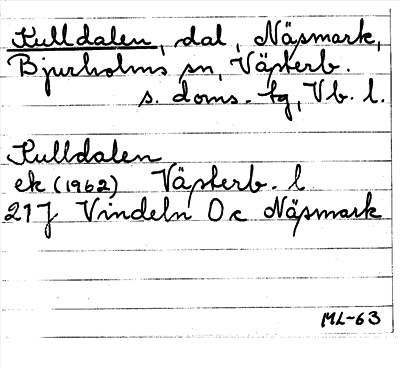 Kulldalen, dal, Näsmark,
Bjurholms sn, Västerb.
s. doms. tg, Vb. l.
Kulldalen
ek (1962) Västerb. l
21J Vindeln Oc Näsmark
ML-63